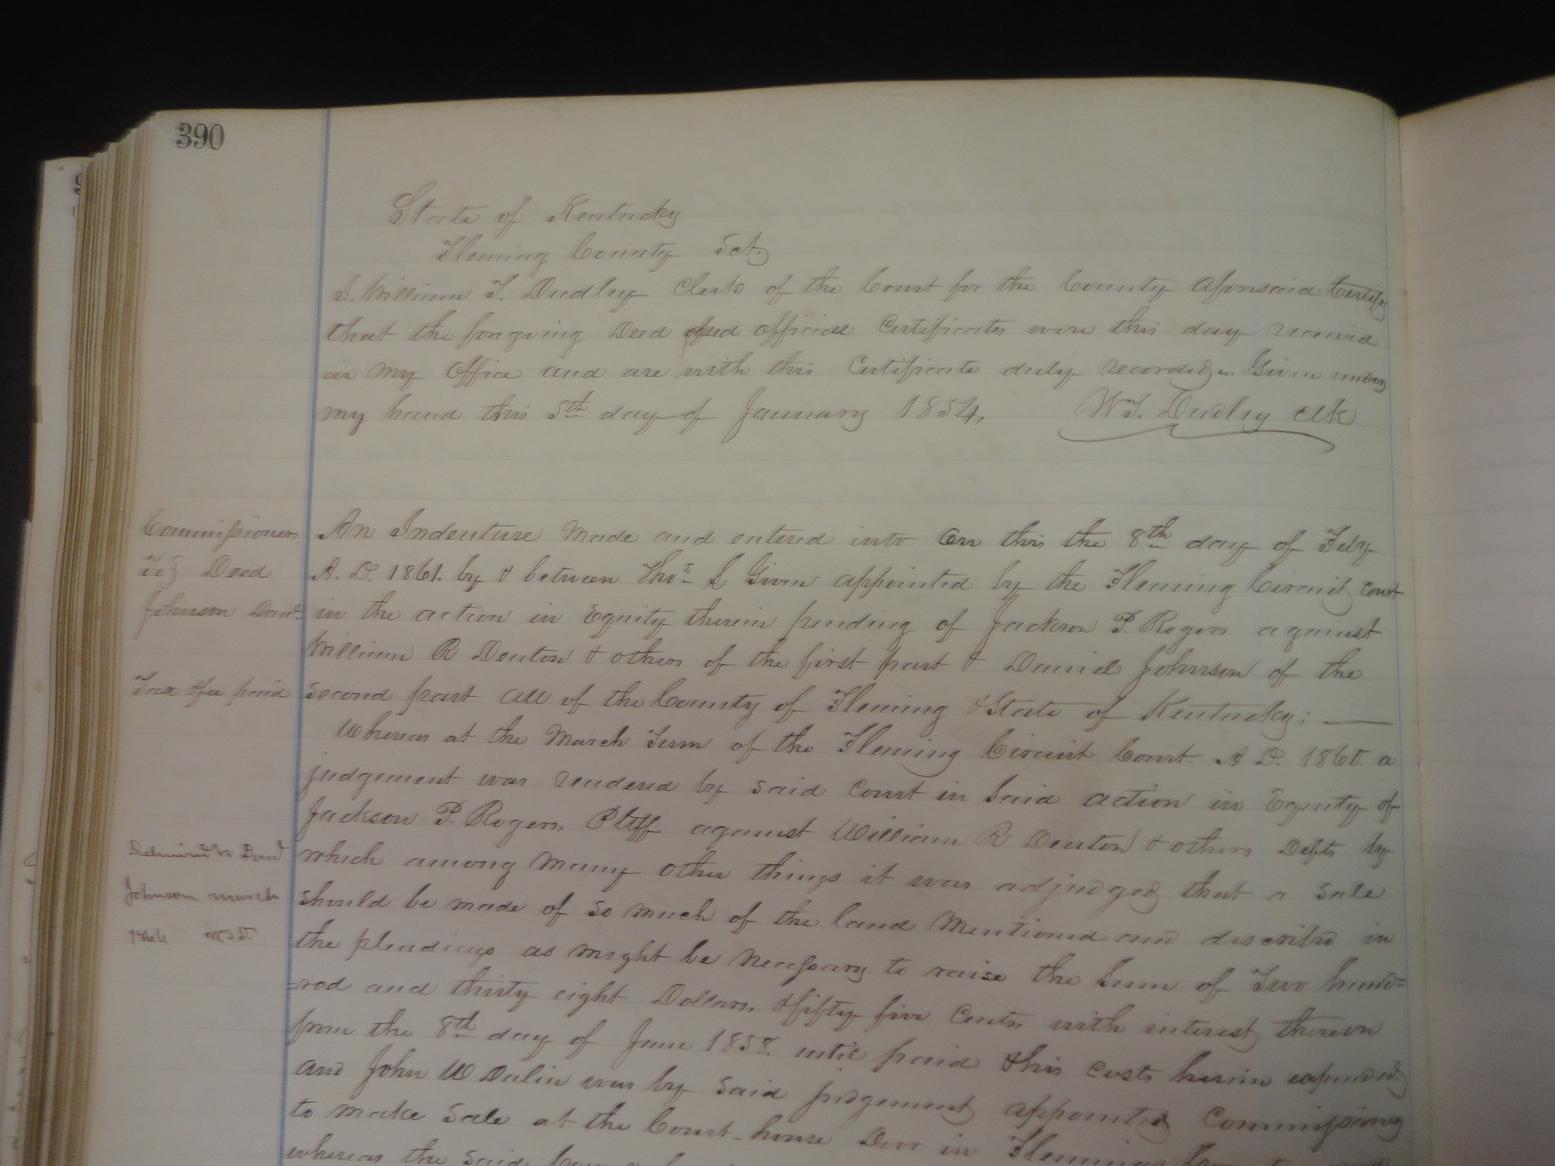 390
State of Kentucky
Fleming County Sct
I. William T. Dudley Clerk of the Court for the County aforesaid Certify
that the foregoing Deed and official Certificates were this day received
in my Office and are with this Certificate duly recorded. Given under
my hand this 5th day of January 1854,
Wm T. Dudley Clk
Commissioners
To} Deed
Johnson Danl
Tax & fee paid
Delivered to Danl
Johnson March
An Indenture made and entered into on this the 8th day of Feby
A. D. 1861. by & between Thos L Given appointed by the Fleming Circuit Court
in the action in Equity therein pending of Jackson P. Rogers against
William R Denton & others of the first part & Daniel Johnson of the
second part all of the County of Fleming & State of Kentucky;
Whereas at the March Term of the Fleming Circuit Court A D. 1860. a
judgement was rendered by said Court in said action in Equity of
Jackson P. Rogers, Pltff against William R Denton & others Defts by
which among many other things it was adjudged that a sale
should be made of so much of the land mentioned and described in
the pleadings as might be necessary to raise the sum of Two hund=
=red and thirty eight Dollars, & fifty five Cents with interest thereon
from the 8th day of June 1858. until paid & his costs herein expended
and John W Dulin was by said judgement appointed Commissioner
to make sale at the Court-house Door in Flemings
whereas the said